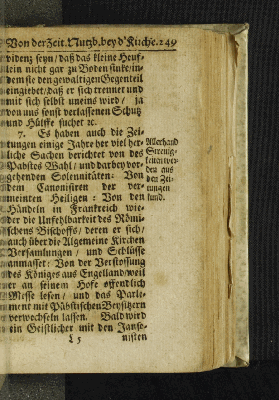 Von der Zeit. Nutzb. bey d' Kirche. 249
videnz seyn / daß das kleine Heuf-
lein nicht gar zu Boden sinke / in-
dem sie den gewaltigen Gegentheil
eingiebet / daß er sich trennet und
mit sich selbst uneins wird / ja
von uns sonst verlassenen Schutz
und Hülffe suchet ꝛc.
7. Es haben auch die Zei-
tungen einige Jahre her viel herr-
liche Sachen berichtet von des
Pabstes Wahl / und darbey vor-
gehenden Solennitäten: Von
dem Canonisiren der ver-
meinten Heiligen: Von den
Händeln in Franckreich wie-
der die Unfehlbarkeit des Römi-
schens Bischoffs / deren er sich /
auch über die Algemeine Kirchen
Versamlungen / und Schlüsse
anmasset: Von der Verstossung
des Königes aus Engelland / weil
er an seinem Hofe öffendlich
Messe lesen / und das Parle-
ment mit Päbstischen Beysitzern
verwechseln lassen. Bald wird
ein Geistlicher mit den Janse-
L 5 nisten
Allerhand
den Zei-
tungen
sind.